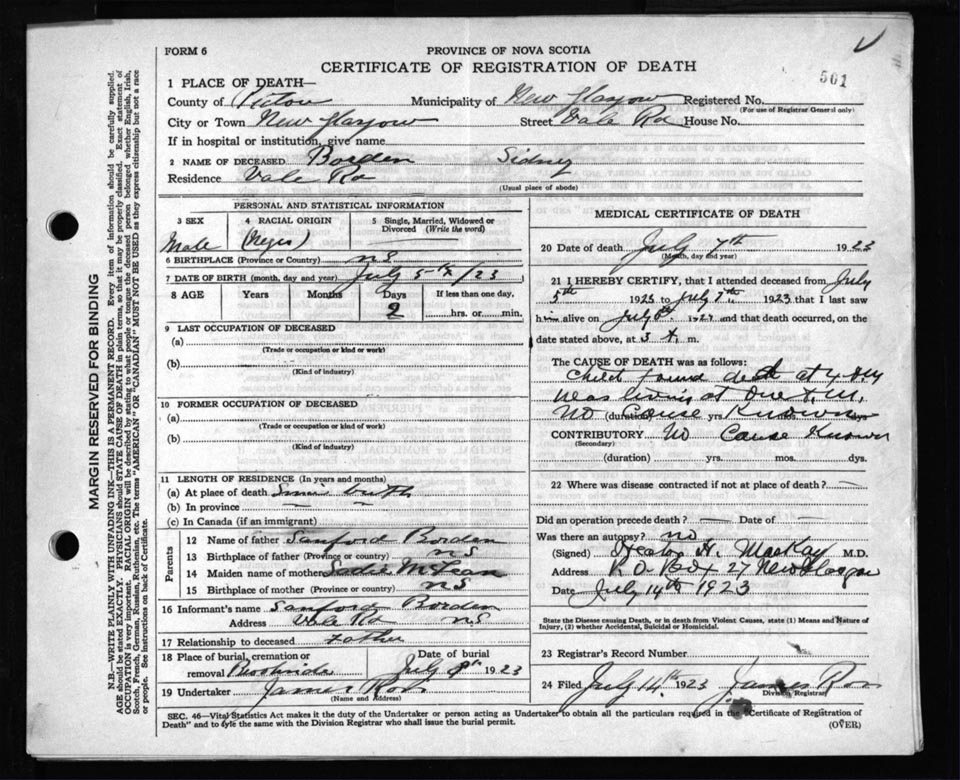 FORM 6
PROVINCE OF NOVA SCOTIA
CERTIFICATE OF REGISTRATION OF DEATH
501
1 PLACE OF DEATH—
County of Pictou Municipality of New Glasgow Registered No.
(For use of Registrar General only)
City or Town New Glasgow Street Vale Rd House No.
If in hospital or institution, give name
2 NAME OF DECEASED Borden Sidney
Residence Vale Rd
(Usual place of abode)
PERSONAL AND STATISTICAL INFORMATION
3 SEX 4 RACIAL ORIGIN 5 Single, Married, Widowed or Divorced (Write the word)
Male (Negro)
6 BIRTHPLACE (Province or Country) NS
7 DATE OF BIRTH (month, day and year) July 5th/23
8 AGE Years Months Days If less than one day,
2 hrs. or min.
9 LAST OCCUPATION OF DECEASED
(a)
(Trade or occupation or kind or work)
(b)
(Kind of industry)
10 FORMER OCCUPATION OF DECEASED
(a)
(Trade or occupation or kind of work)
(b)
(Kind of industry)
11 LENGTH OF RESIDENCE (In years and months)
(a) At place of death Since birth
(b) In province
(c) In Canada (if an immigrant)
Parents
12 Name of father Sanford Borden
13 Birthplace of father (Province or country) NS
14 Maiden name of mother Sadie McLean
15 Birthplace of mother (Province or country) NS
16 Informant's name Sanford Borden
Address Vale Rd NS
17 Relationship to deceased Father
18 Place of burial, cremation or removal Date of burial
July 8th 1923
19 Undertaker James Ross
(Name and Address)
MEDICAL CERTIFICATE OF DEATH
20 Date of death July 7th 1923
(Month, day and year)
21 I HEREBY CERTIFY, that I attended deceased from July
5th 1923 to July 7th 1923 that I last saw
him alive on July 192 and that death occurred, on
date stated above, at m.
The CAUSE OF DEATH was as follows:
Child found dead at
was living at One
No Cause Known
(duration) yrs. days
CONTRIBUTORY No Cause Known
(Secondary)
(duration) yrs. mos. dys.
22 Where was disease contracted if not at place of death?
Did an operation precede death? Date of
Was there an autopsy? no
(Signed) H. MacKay M.D.
Address P.O. Box 27 New Glasgow
Date July 14th 1923
State the Disease causing Death, or in death from Violent Causes, state (1) Means and Nature of
Injury, (2) whether Accidental, Suicidal or Homicidal.
23 Registrar's Record Number
24 Filed July 14th 1923 James Ross
Division Registrar
SEC. 46—Vital Statistics Act makes it the duty of the Undertaker or person acting as Undertaker to obtain all the particulars required in the "Certificate of Registration of
Death" and to file the same with the Division Registrar who shall issue the burial permit.
(OVER)
MARGIN RESERVED FOR BINDING
N.B.—WRITE PLAINLY WITH UNFADING INK—THIS IS A PERMANENT RECORD. Every item of information should be carefully supplied.
AGE should be stated EXACTLY. PHYSICIANS should STATE CAUSE OF DEATH in plain terms, so that it may be properly classified. Exact statement of
OCCUPATION is very important. RACIAL ORIGIN will be described by stating to what people or tongue the deceased person belonged whether English, Irish,
Scotch, French, German, Russian, Ruthenian, etc. The terms "AMERICAN" OR "CANADIAN" MUST NOT BE USED as they express citizenship but not a race
or people. See instructions on back of Certificate.